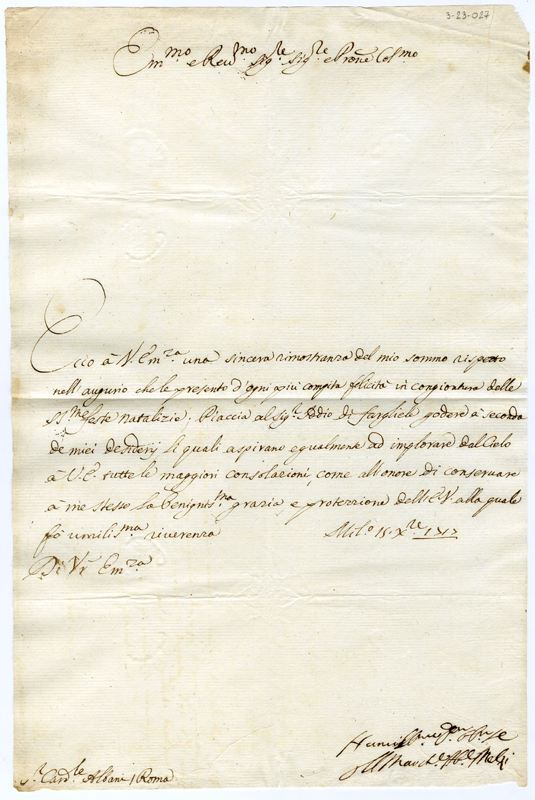 3-23-027
Em.mo e Rev.mo Sig.re Sig.re e Prone Col.mo
Ecco à V. Em.za una sincera rimostranza del mio sommo rispetto
nell' augurio che le presento d'ogni più compita felicità in congiontura delle
SS.me feste natalizie; Piaccia al Sig.r Iddio di fargliele godere à seconda
de miei desiderij li quali aspirano egualmente ad implorare dal Cielo
à V.E. tutte le maggiori consolazioni, come all'onore di conservare
à me stesso la benignis.ma grazia, e protezzione dell'E.V. alla quale
fò umilis.ma riverenza Mil.o 15. X.re 1717
Di V.r Em.za
S.r Card.le Albani / Roma